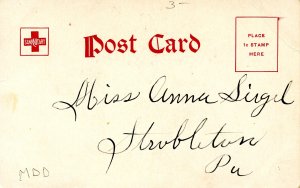 3-
Post Card
PLACE
1c STAMP
HERE
Miss Anna Sigel
Strobleton
Pa
MDD